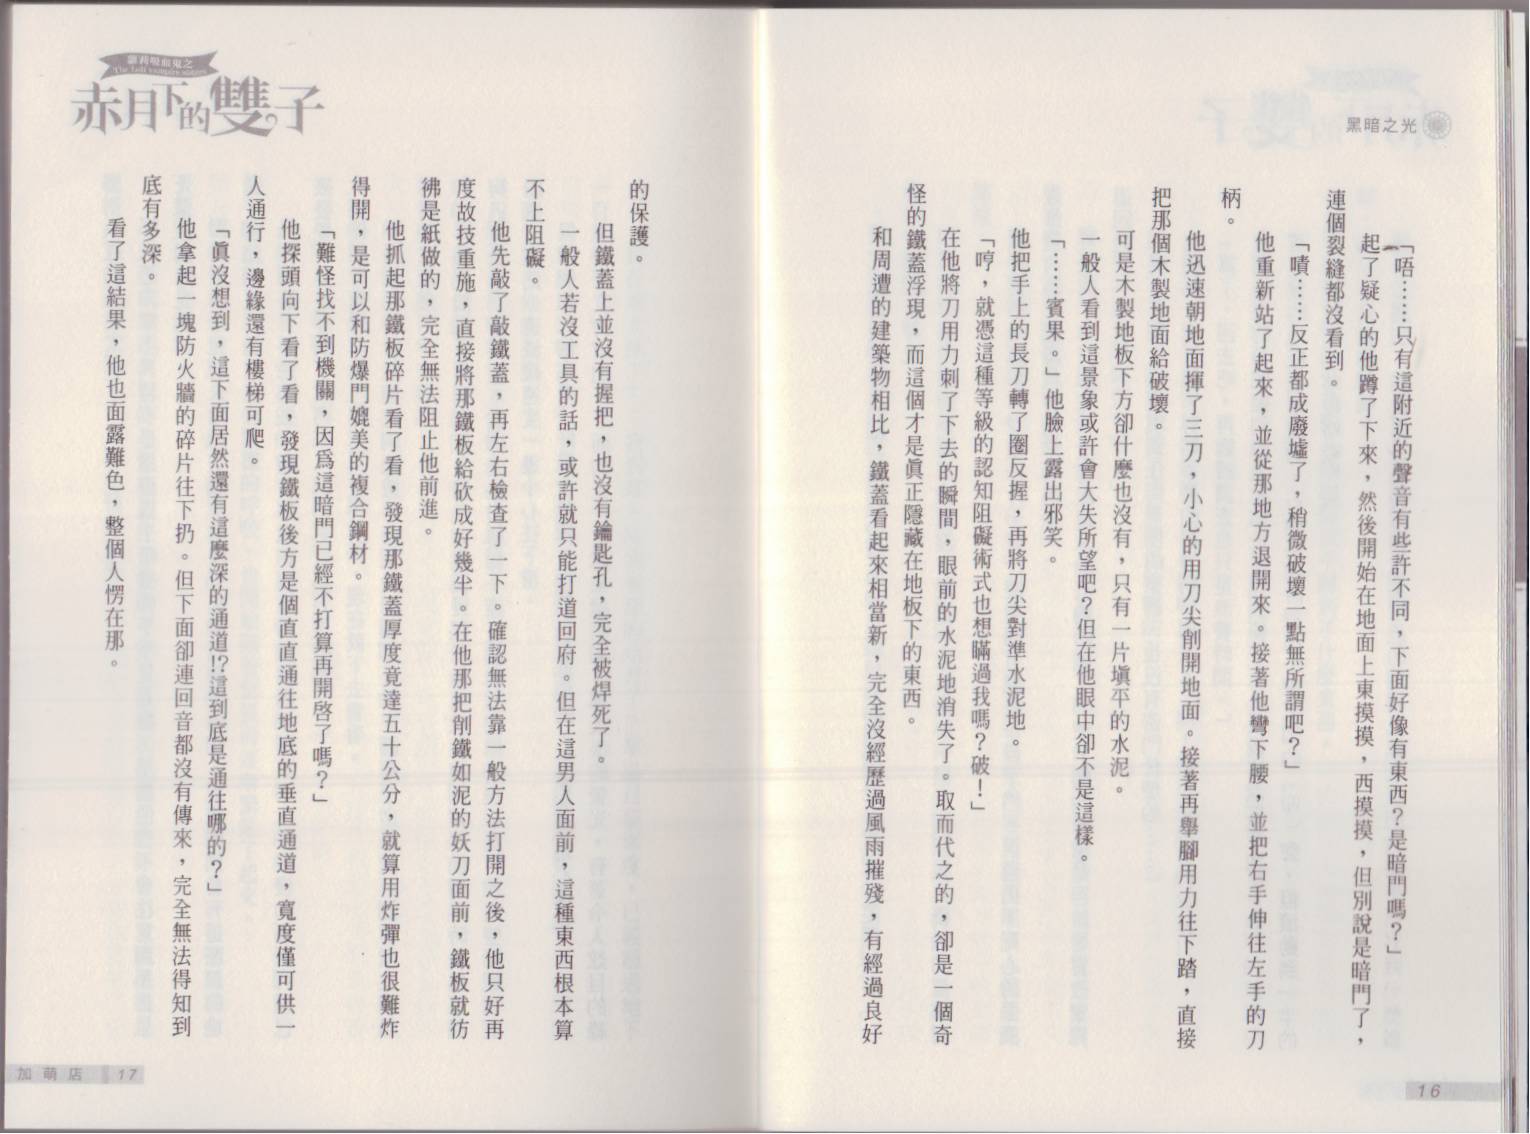 黑暗之光
「唔……只有這附近的聲音有些許不同，下面好像有東西？是暗門嗎？」
起了疑心的他蹲了下來，然後開始在地面上東摸摸，西摸摸，但別說是暗門了，
連個裂縫都沒看到。
「嘖……反正都成廢墟了，稍微破壞一點無所謂吧？」
他重新站了起來，並從那地方退開來。接著他彎下腰，並把右手伸往左手的刀
柄。
他迅速朝地面揮了三刀，小心的用刀尖創開地面。接著再舉腳用力往下踏，直接
把那個木製地面給破壞。
可是木製地板下方卻什麼也沒有，只有一片填平的水泥。
一般人看到這景象或許會大失所望吧？但在他眼中卻不是這樣。
「……賓果。」他臉上露出邪笑。
他把手上的長刀轉了圈反握，再將刀尖對準水泥地。
「哼，就憑這種等級的認知阻礙術式也想瞞過我嗎？破！」
在他將刀用力刺了下去的瞬間，眼前的水泥地消失了。取而代之的，卻是一個奇
怪的鐵蓋浮現，而這個才是真正隱藏在地板下的東西。
和周遭的建築物相比，鐵蓋看起來相當新，完全沒經歷過風雨摧殘，有經過良好
16
蘿莉吸血鬼之
The Loli vampire sisters
赤月下的雙子
的保護。
但鐵蓋上並沒有握把，也沒有鑰匙孔，完全被焊死了。
一般人若沒工具的話，或許就只能打道回府。但在這男人面前，這種東西根本算
不上阻礙。
他先敲了敲鐵蓋，再左右檢查了一下。確認無法靠一般方法打開之後，他只好再
度故技重施，直接將那鐵板給砍成好幾半。在他那把削鐵如泥的妖刀面前，鐵板就彷
彿是紙做的，完全無法阻止他前進。
他抓起那鐵板碎片看了看，發現那鐵蓋厚度竟達五十公分，就算用炸彈也很難炸
得開，是可以和防爆門媲美的複合鋼材。
「難怪找不到機關，因為這暗門已經不打算再開啓了嗎？」
他探頭向下看了看，發現鐵板後方是個直直通往地底的垂直通道，寬度僅可供一
人通行，邊緣還有樓梯可爬。
「真沒想到，這下面居然還有這麼深的通道!?這到底是通往哪的？」
他拿起一塊防火牆的碎片往下扔。但下面卻連回音都沒有傳來，完全無法得知到
底有多深。
看了這結果，他也面露難色，整個人愣在那。
加萌店 17